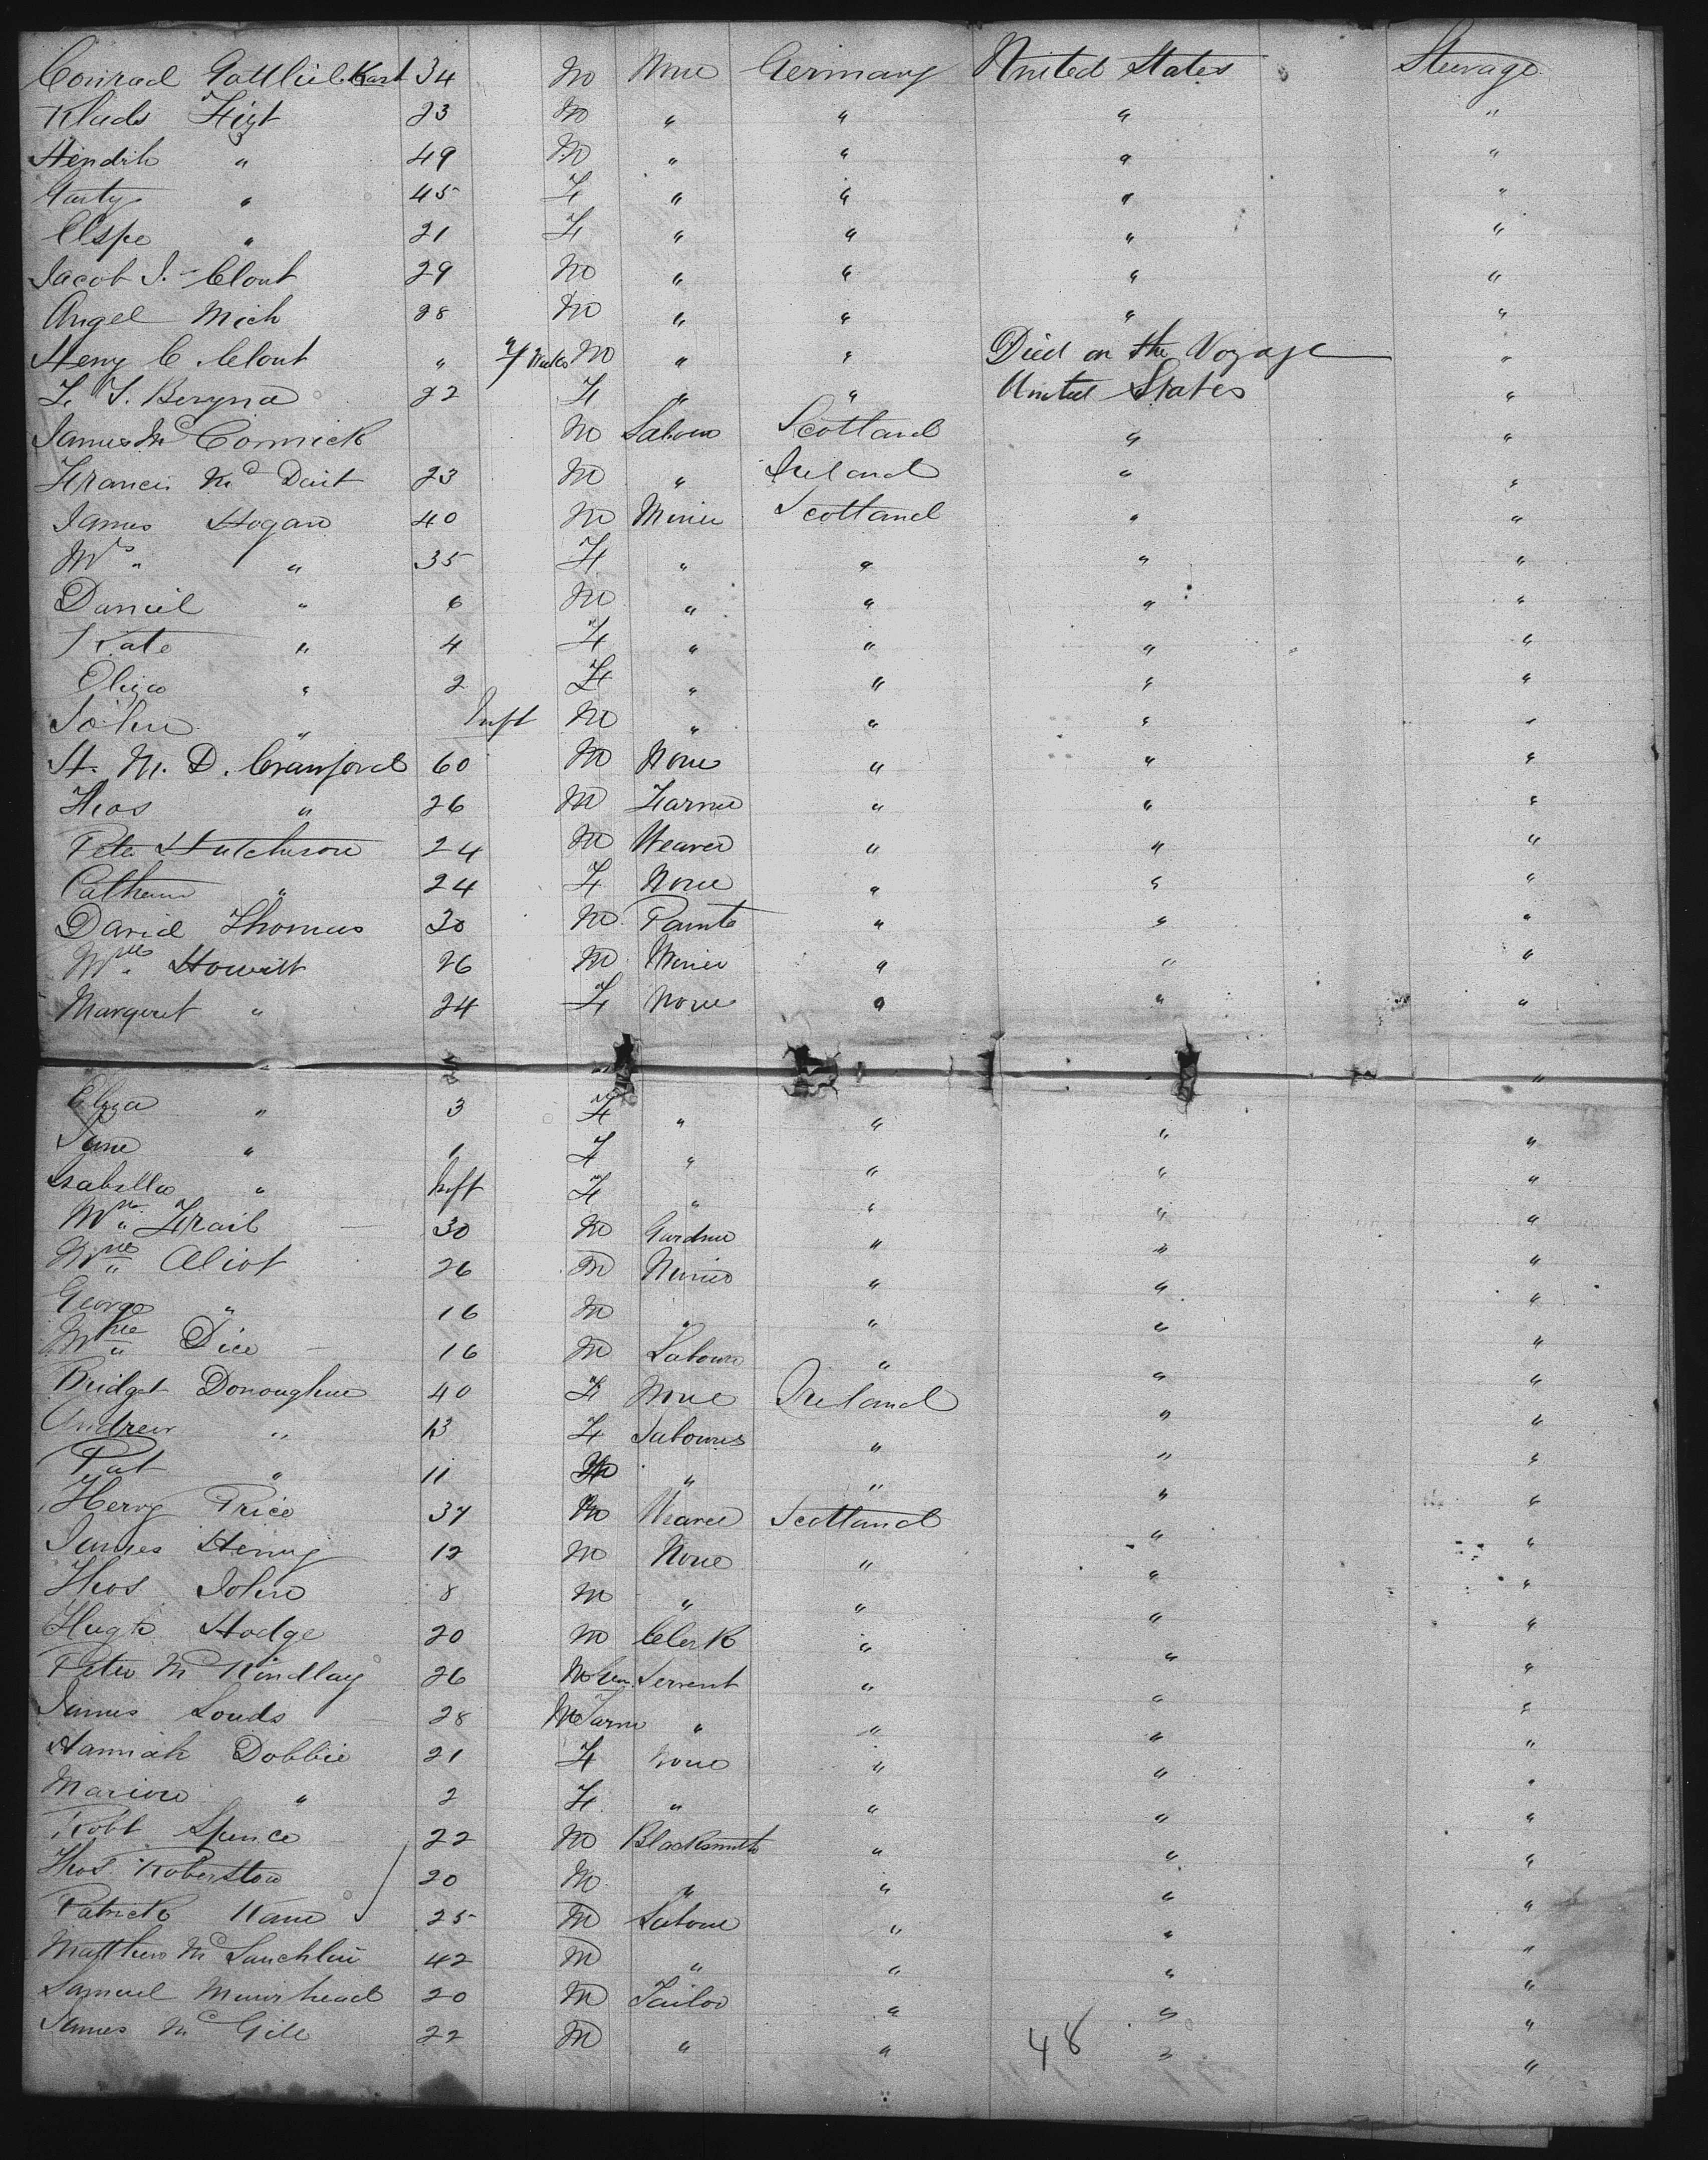 Conrad Gottlieb Kart 34 M None Germany United States Steerage
Klaas Figt 23 M " " " "
Hendrik " 49 M " " " "
Garty " 45 F " " " "
Elspe " 21 F " " " "
Jacob J. Clout 29 M " " " "
Angel Mich 28 M " " " "
Henry C. Clout " 7 Weeks M " " Died on the Voyage "
F. J. Beryna 22 F " " United States "
James Mc Cormick M Labour Scotland " "
Francis Mc Dait 23 M " Ireland " "
James Hogan 40 M Miner Scotland " "
Mrs " 35 F " " " "
Daniel " 6 M " " " "
Kate " 4 F " " " "
Eliza " 2 F " " " "
John " Inft M " " " "
H. M. D. Crawford 60 M None " " "
Thos " 26 M Farmer " " "
Peter Hutchison 24 M Weaver " " "
Cathern " 24 F None " " "
David Thomas 30 M Painte " " "
Wm Howitt 26 M Miner " " "
Margeret " 24 F None " " "
"
Eliza " 3 F " " " "
Jane " 1 F " " " "
Isabella " Inft F " " " "
Wm Frail 30 M Gardner " " "
Wm Aliot 26 M Miner " " "
George " 16 M " " " "
Wm Dice 16 M Labour " " "
Bridget Donoughue 40 F None Ireland " "
Andrew " 13 F Labourer " " "
Pat " 11 M " " " "
Henry Price 37 M Weaver Scotland " "
James Henry 12 M None " " "
Thos John 8 M " " " "
Hugh Hodge 20 M Clerk " " "
Peter Mc Kindlay 26 M Servent " " "
James Louds 28 M Farm " " " "
Hannah Dobbie 21 F None " " "
Marion " 2 F " " " "
Robt Spence 22 M Blacksmith " " "
Thos Robertson 20 M " " " "
Patrick Kane 25 M Labour " " "
Matthew Mc Lauchlin 42 M " " " "
Samuel Muirhead 20 M Tailor " " "
James Mc Gill 22 M " " " "
48